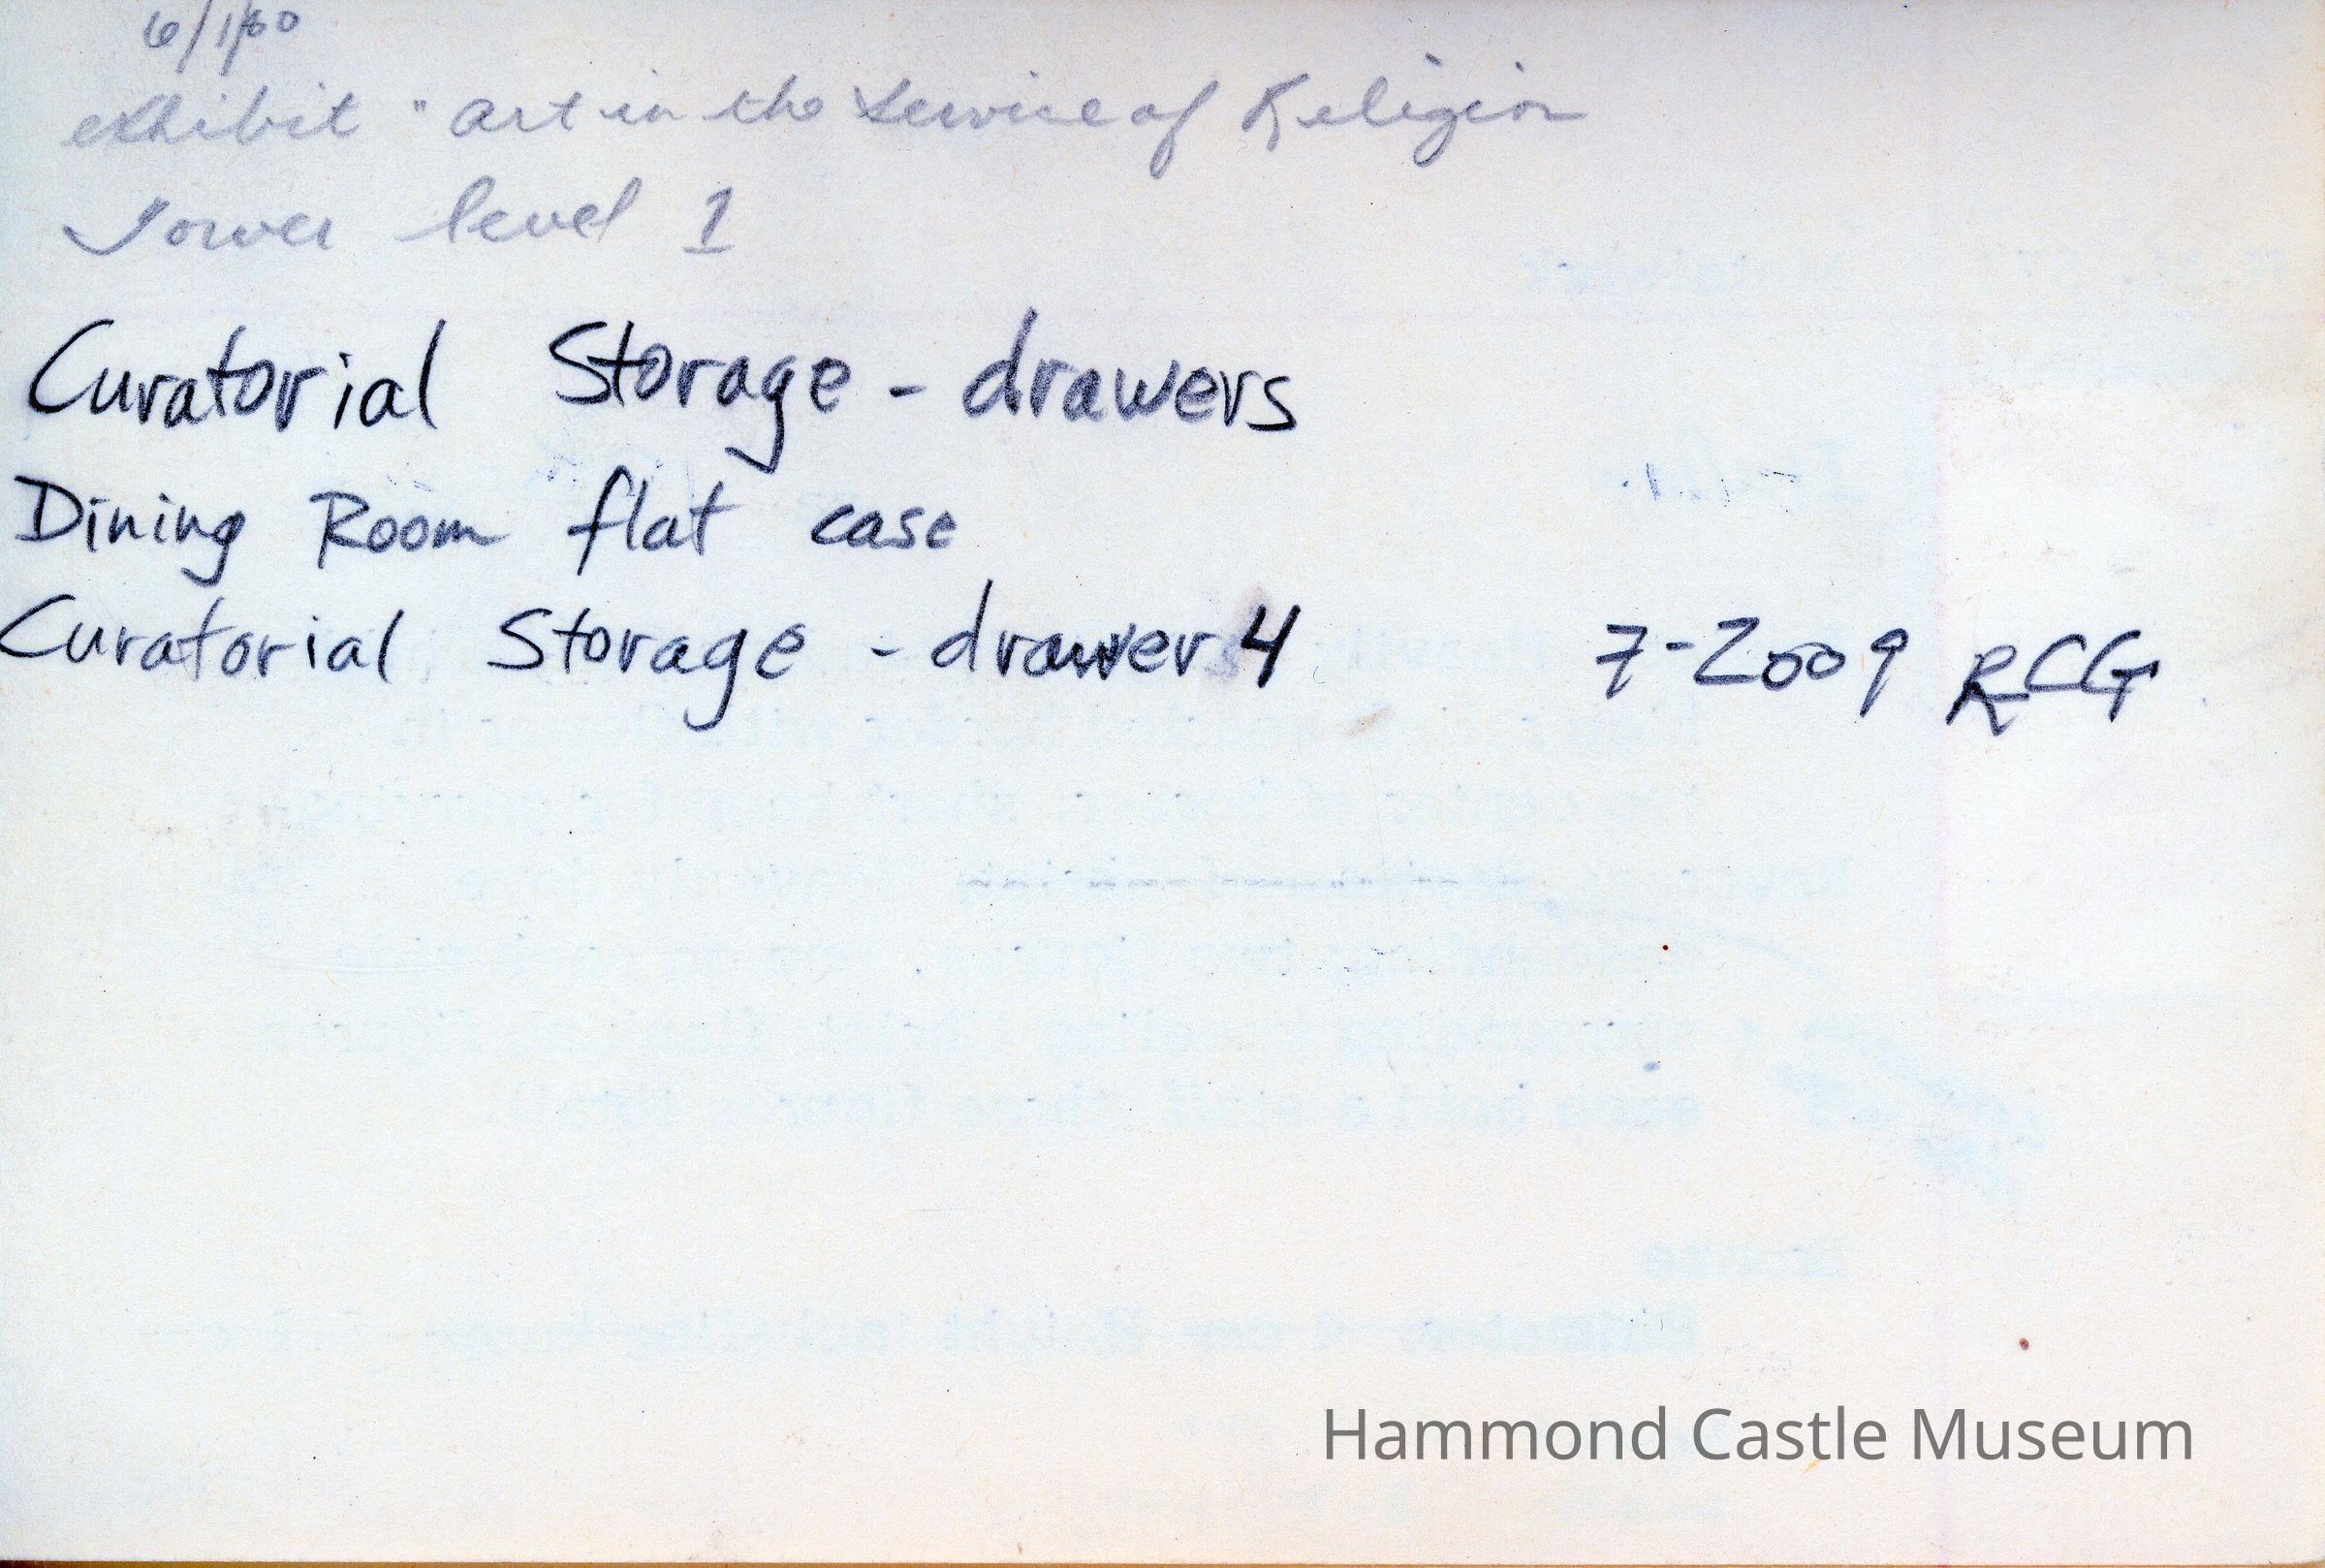 exhibit "art in the service of Religion
Tower level 1
Curatorial Storage - drawers
Dining Room flat case
Curatorial Storage - drawer 4 7-2009 RCG
Hammond Castle Museum